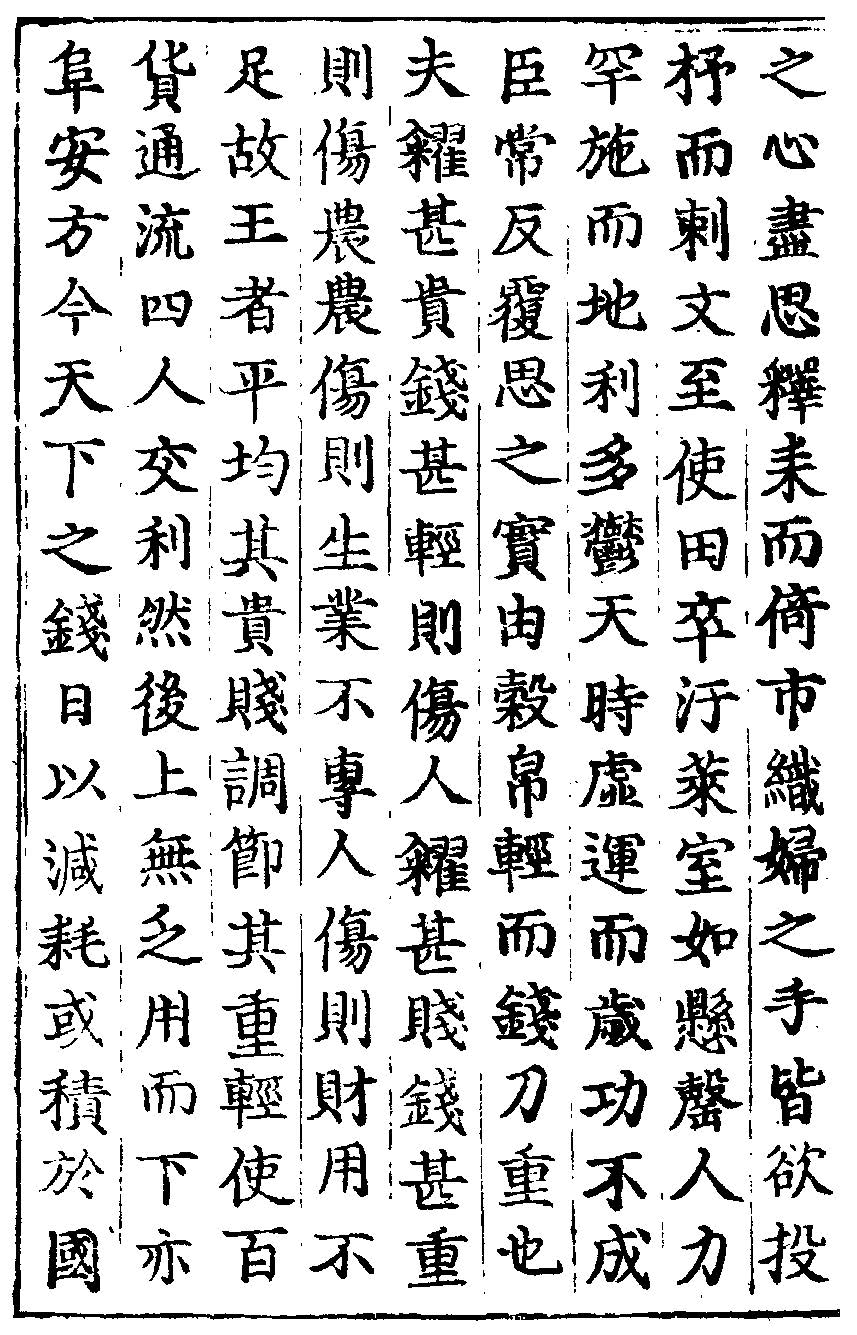 之心盡思釋耒而倚市織婦之手皆欲投
杼而刺文至使田卒汙萊室如懸罄人力
罕施而地利多鬱天時虛運而歲功不成
臣常反覆思之實由穀帛輕而錢刀重也
夫糴甚貴錢甚輕則傷人糴甚賤錢甚重
則傷農農傷則生業不專人傷則財用不
足故王者平均其貴賤調節其重輕使百
貨通流四人交利然後上無乏用而下亦
阜安方今天下之錢日以減耗或積於國